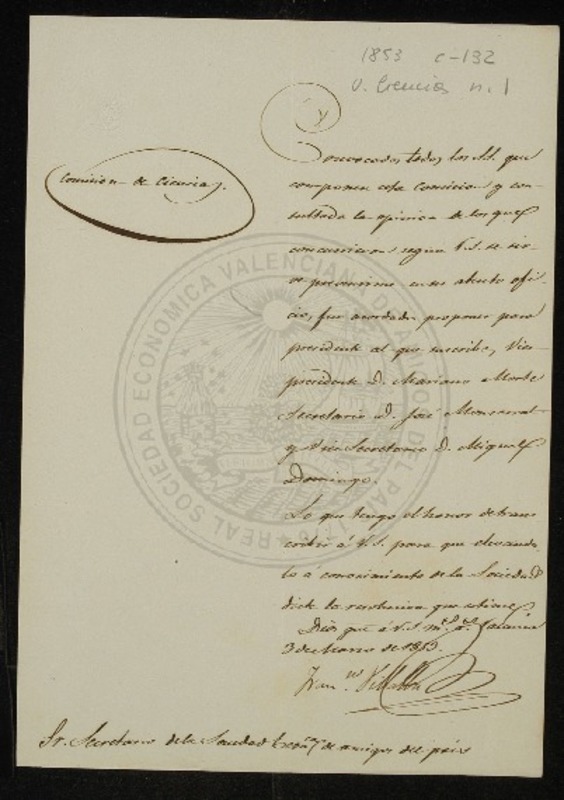 1853 c-132
V. Ciencias n. 1
Comision de Ciencias.
Convocados todos los S.S. que
componen esta Comision y con-
sultada la opinion de los que
concurrieron segun V.S. se sir-
ve prevenirme en su atento ofi-
cio, fue acordado proponer para
presidente al que suscribe, Vice-
presidente D. Mariano
Secretario D. José Monserrat
y Vice Secretario D. Miguel
Domingo.
Lo que tengo el honor de trans-
cribir á V.S. para que elevando-
lo á conocimiento de la Sociedad
dicte la resolucion que estime.
Dios gue á V.S. ms. as. Valencia
3 de Marzo de 1853.
Franco Villalba
Sr. Secretario de la Sociedad Econca de amigos del país
REAL SOCIEDAD ECONOMICA VALENCIANA DE AMIGOS DEL PAIS 1776